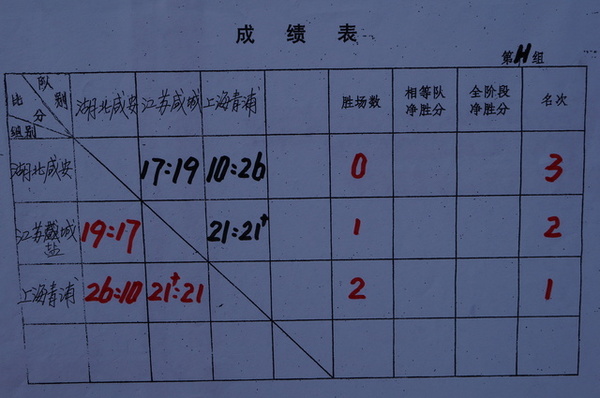 成绩表
第H组
队别
比分
组别
湖北咸安 江苏咸城 上海青浦 胜场数 相等队净胜分 全阶段净胜分 名次
湖北咸安 17:19 10:26 0 3
江苏盐城 19:17 21:21+ 1 2
上海青浦 26:10 21+:21 2 1